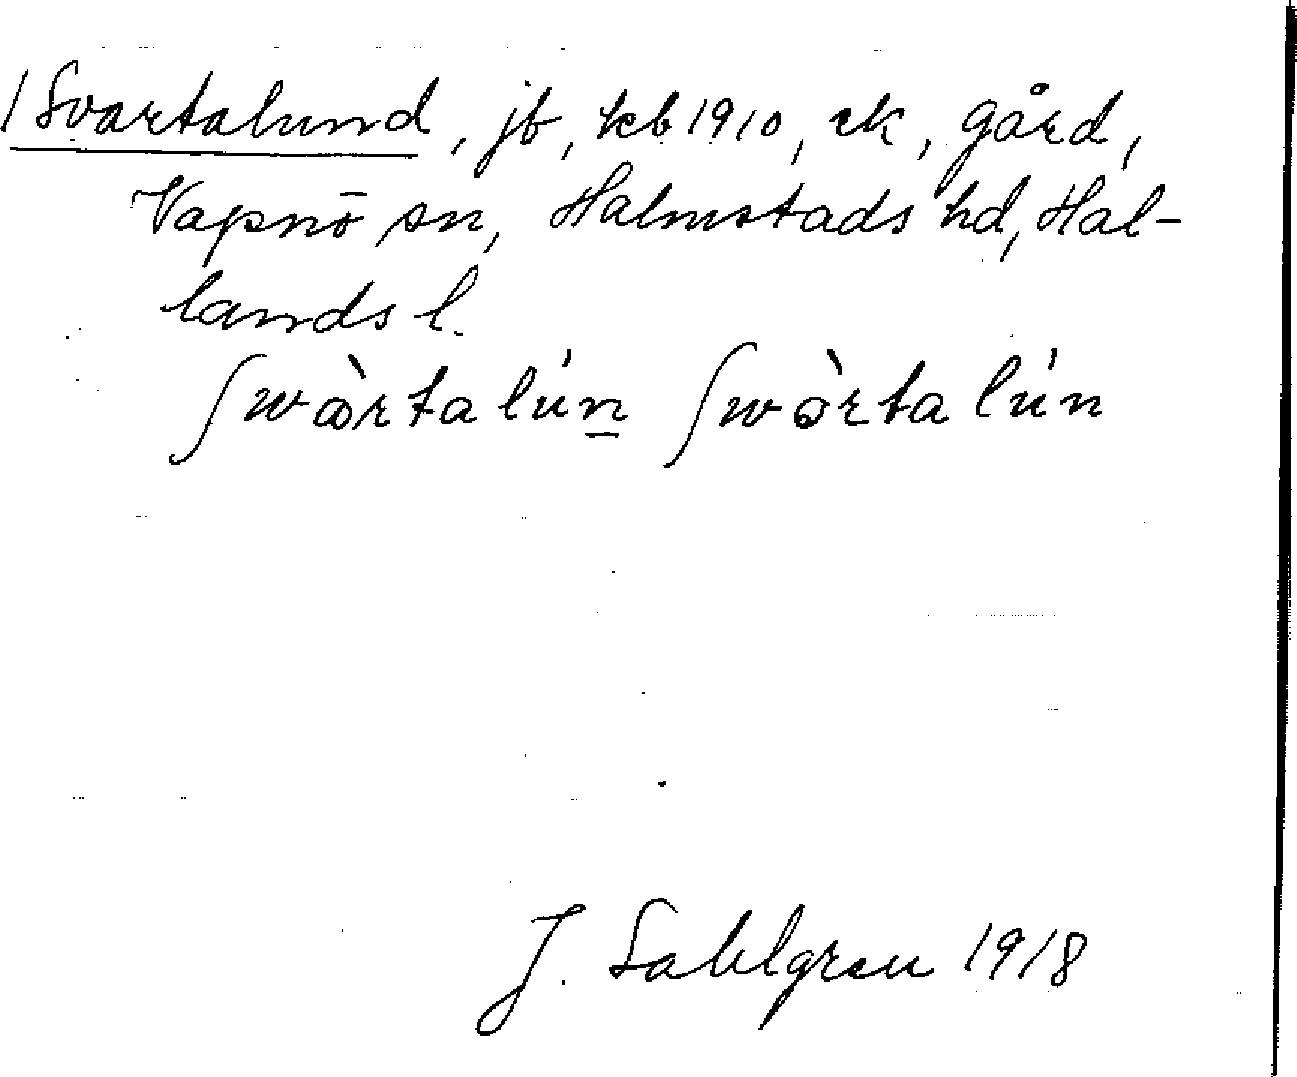 / Svartalund, jb, kcb 1910, ek, gård,
Vapnö sn, Halmstads hd, Hal-
lands l.
ʃwɑ̀rtalún̲ ʃwɔ̀rtalún
J. Sahlgren 1918